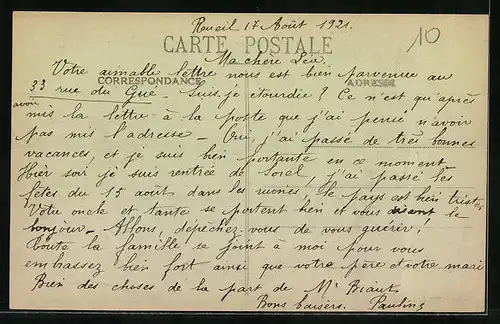 Rueil 17 Août 1921.
10
CARTE POSTALE
Ma chère Léa,
Votre aimable lettre nous est bien parvenue au
CORRESPONDANCE
ADRESSE
33 rue du Gué - Suis je étourdie ? Ce n'est qu'après
avoir mis la lettre à la poste que j'ai pensé n'avoir
pas mis l'adresse - Oui, j'ai passé de très bonnes
vacances, et je suis bien portante en ce moment
Hier soir je suis rentrée de Sorel, j'ai passé les
fêtes du 15 août dans les ruines, le pays est bien triste,
Votre oncle et tante se portent bien et vous disent le
bonjour - Allons, dépêchez-vous de vous guérir !
Toute la famille se joint à moi pour vous
embrassez bien fort ainsi que votre père et votre mari
Bien des choses de la part de Mr
Bons baisers. Pauline